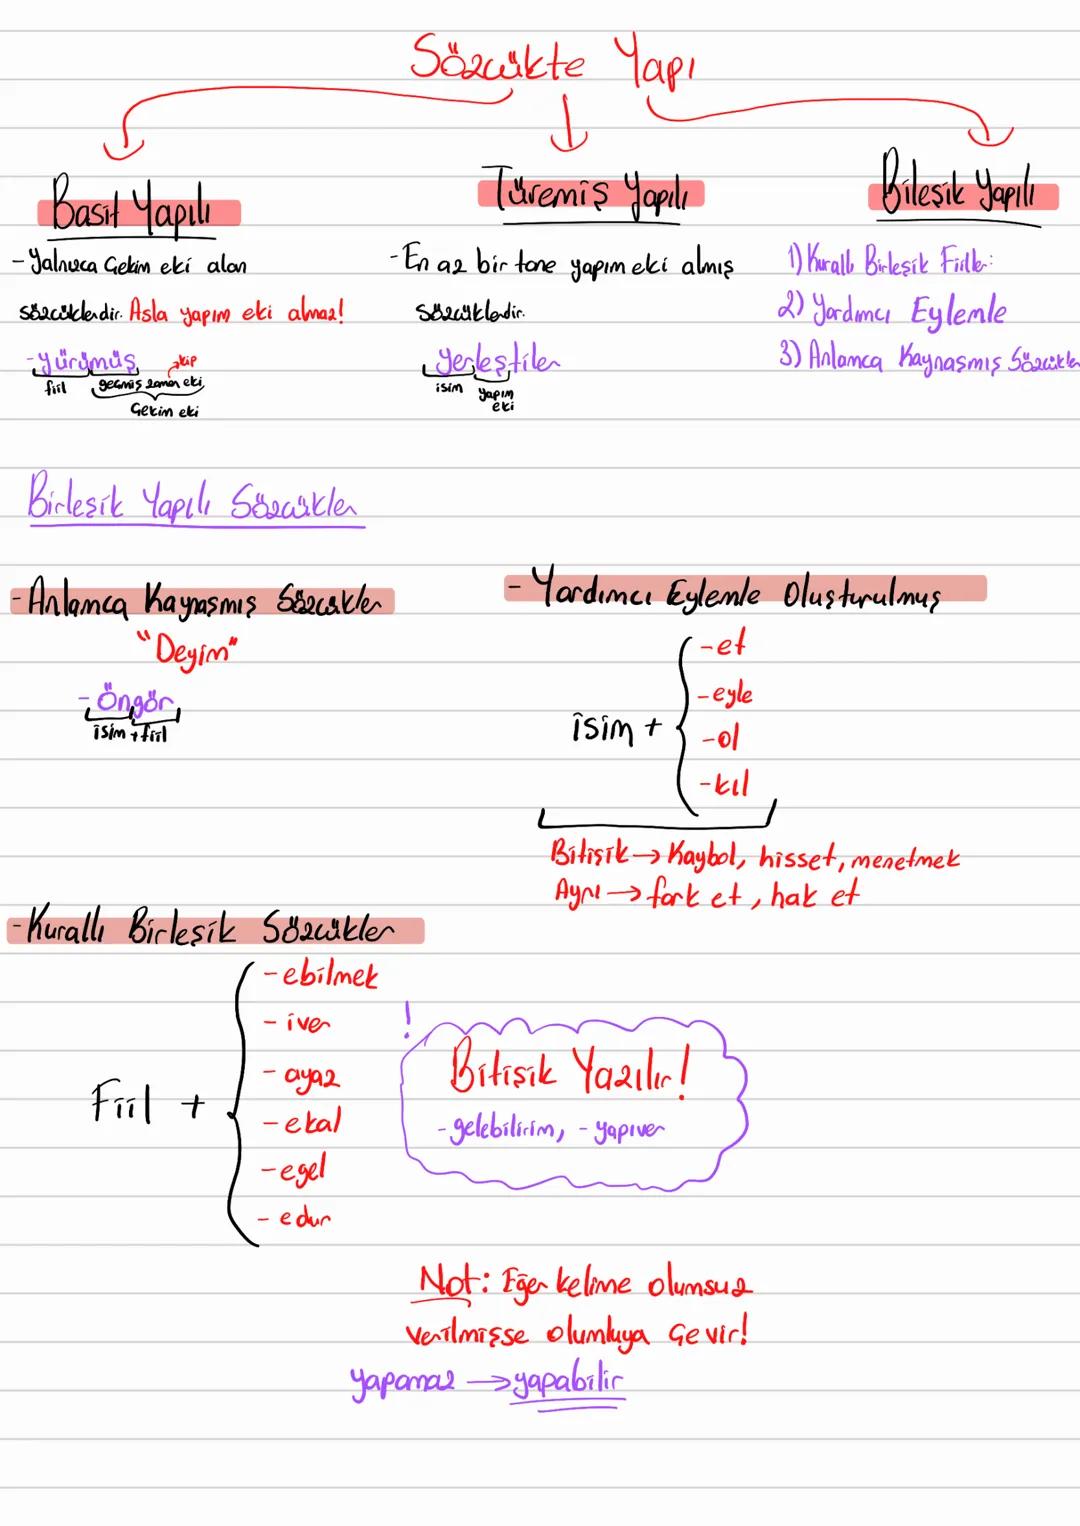 Sözcükte Yapı
Basit Yapılı
- Yalnızca Çekim eki alan
sözcüklerdir. Asla yapım eki almaz!
- yürümüş
kip
fiil
geçmiş zaman eki
Çekim eki
Türemiş Yapılı
- En az bir tane yapım eki almış
sözcüklerdir.
yerleştiler
isim
yapım
eki
Bileşik Yapılı
1) Kurallı Birleşik Fiiller:
2) Yardımcı Eylemle
3) Anlamca Kaynaşmış Sözcükler
Birleşik Yapılı Sözcükler
- Anlamca Kaynaşmış Sözcükler
"Deyim"
- Öngör
isim + fiil
- Yardımcı Eylemle Oluşturulmuş
isim +
- et
- eyle
- ol
- kıl
Bitişik → Kaybol, hisset, menetmek
Ayrı → fark et, hak et
- Kurallı Birleşik Sözcükler
Fiil +
- ebilmek
- iver
- ayaz
- ekal
- egel
- edur
!
Bitişik Yazılır!
- gelebilirim, - yapıver
Not: Eğer kelime olumsuz
verilmişse olumluya Çevir!
yapamaz → yapabilir